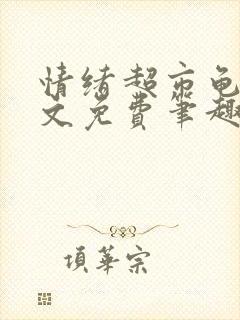 情绪超市龟
文免费笔趣
項華宗